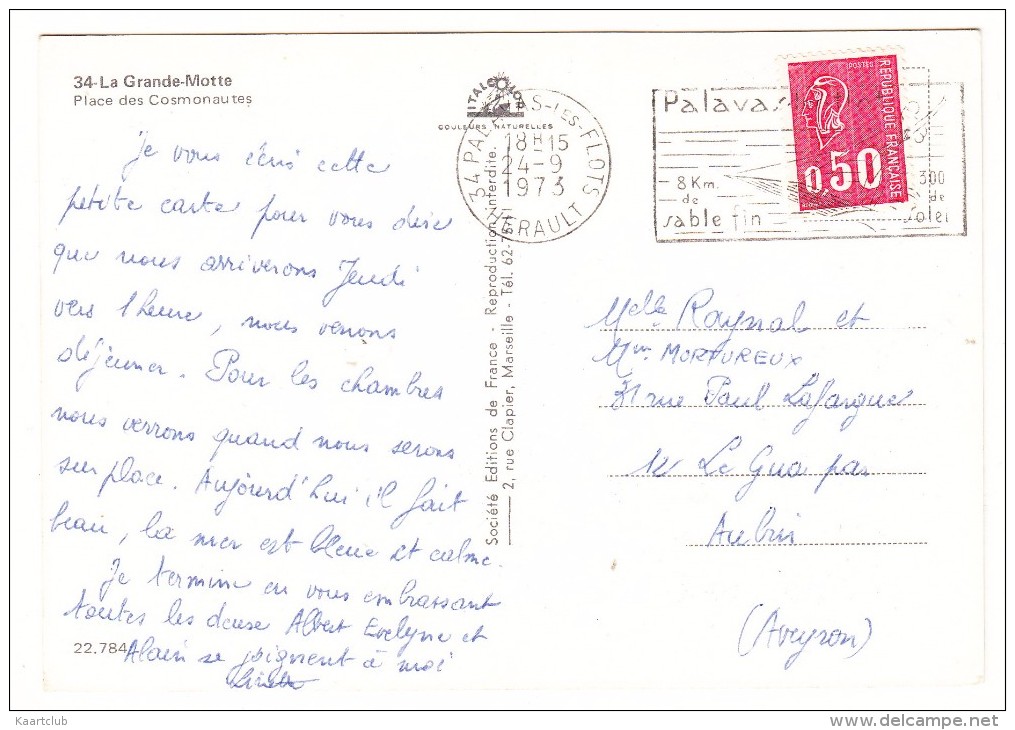 34-La Grande-Motte
Place des Cosmonautes
Je vous écris cette
petite carte pour vous dire
que nous arriverons Jeudi
vers 1 heure, nous venons
déjeuner. Pour les chambres
nous verrons quand nous serons
sur place. Aujourd'hui il fait
beau, la mer est bleue et calme.
Je termine en vous embrassant
toutes les deux Albert Evelyne et
Alain se joignent à moi
22.784
ITALCOLOR
COULEURS NATURELLES
Société Editions de France - Reproduction interdite.
2, rue Clapier, Marseille - Tél. 62-
34 PALAVAS-LES-FLOTS
18H15
24-9
1973
HERAULT
Palavas
8 Km.
de
sable fin
300
de
solei
POSTES
REPUBLIQUE FRANÇAISE
0,50
Melle Raynal et
Mme MORTUREUX
31 rue Paul Lafargue
12 Le Gua par
Aubin
(Aveyron)
Kaartclub
www.delcampe.net